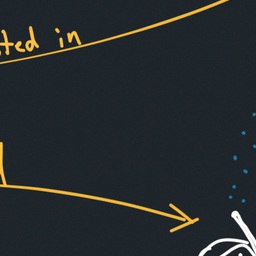 ted in